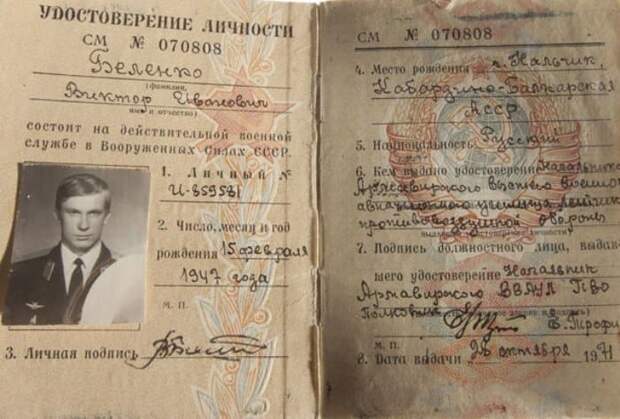 УДОСТОВЕРЕНИЕ ЛИЧНОСТИ
СМ № 070808
Беленко
(фамилия,
Виктор Иванович
имя и отчество)
состоит на действительной военной
службе в Вооруженных Силах СССР.
1. Личный №
И-859581
2. Число, месяц и год
рождения 15 февраля
1947 года
М. П.
3. Личная подпись
СМ № 070808
4. Место рождения г. Нальчик,
Кабардино-Балкарская
АССР
5. Национальность Русский
6. Кем выдано удостоверение Начальником
Армавирского высшего военного
авиационного училища летчиков
противовоздушной обороны
7. Подпись должностного лица, выдав-
шего удостоверение Начальник
Армавирского ВВАУЛ ПВО
Полковник
М. П.
8. Дата выдачи 26 октября 1971